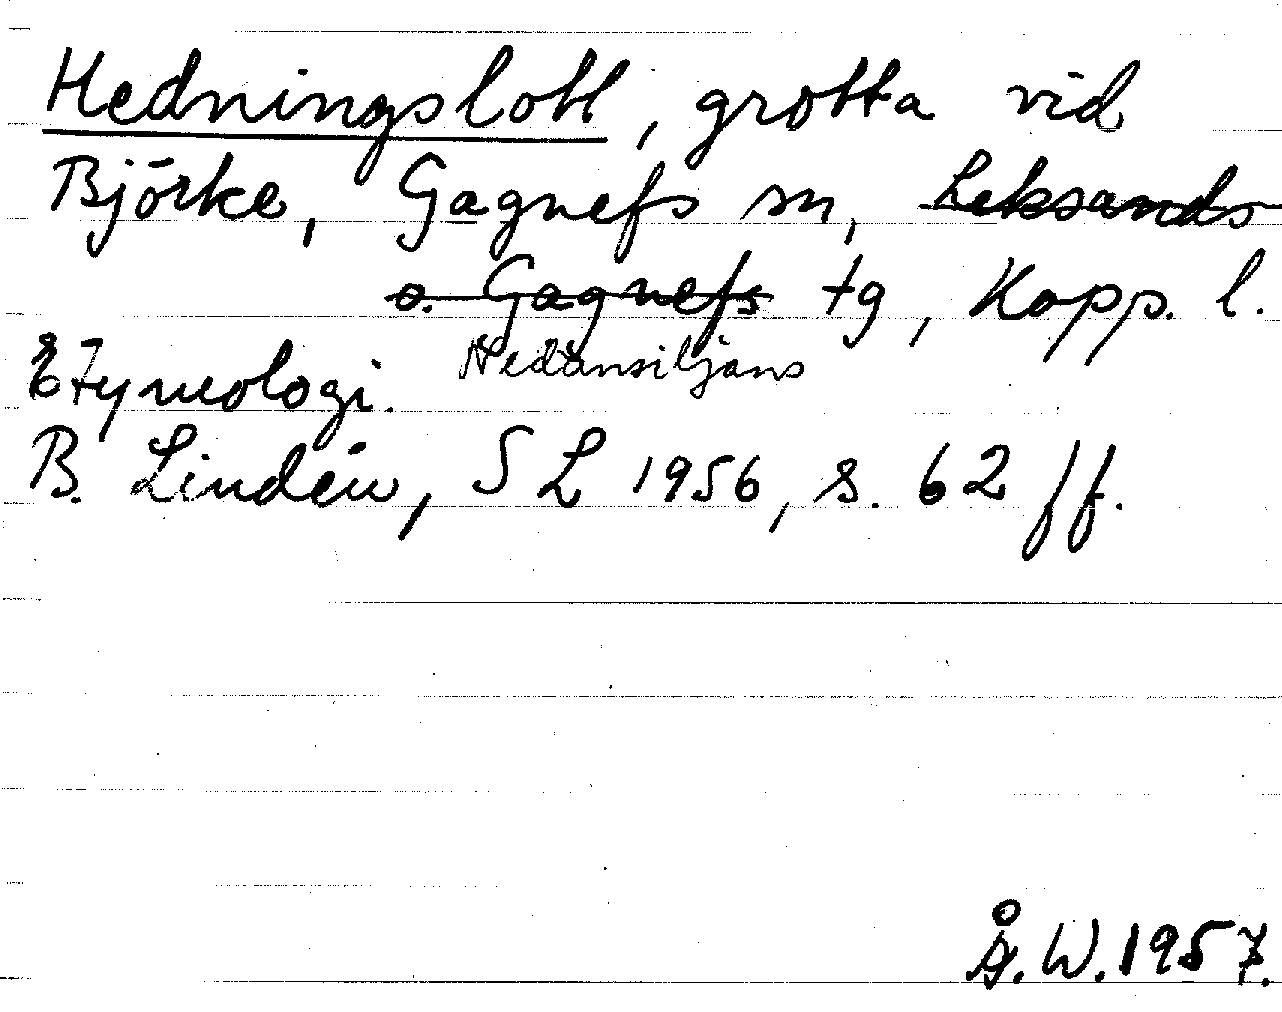 Hedningslott, grotta vid
Björke, Gagnefs sn, Leksands
o. Gagnefs tg, Kopp. l.
Nedansiljans
Etymologi.
B. Lindén, SL 1956, s. 62 ff.
Å.W. 1957.